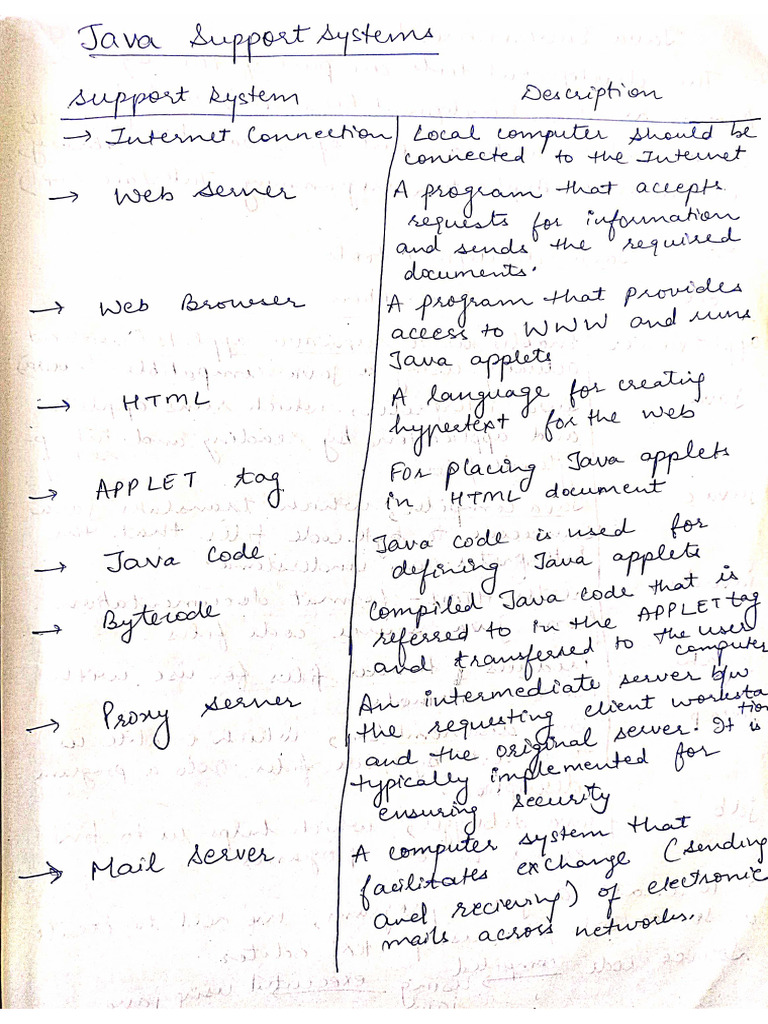 Java Support Systems
Support System Description
→ Internet Connection Local computer should be
connected to the Internet
→ Web Server A program that accepts
requests for information
and sends the required
documents.
→ Web Browser A program that provides
access to WWW and runs
Java applets
→ HTML A language for creating
hypertext for the web
→ APPLET tag For placing Java applets
in HTML document
→ Java Code Java code is used for
defining Java applets
→ Bytecode Compiled Java code that is
referred to in the APPLET tag
and transferred to the user
computer
→ Proxy Server An intermediate server b/w
the requesting client worksta
tion
and the original server. It is
typically implemented for
ensuring security
→ Mail Server A computer system that
facilitates exchange (sending
and recieving) of electronic
mails across networks.